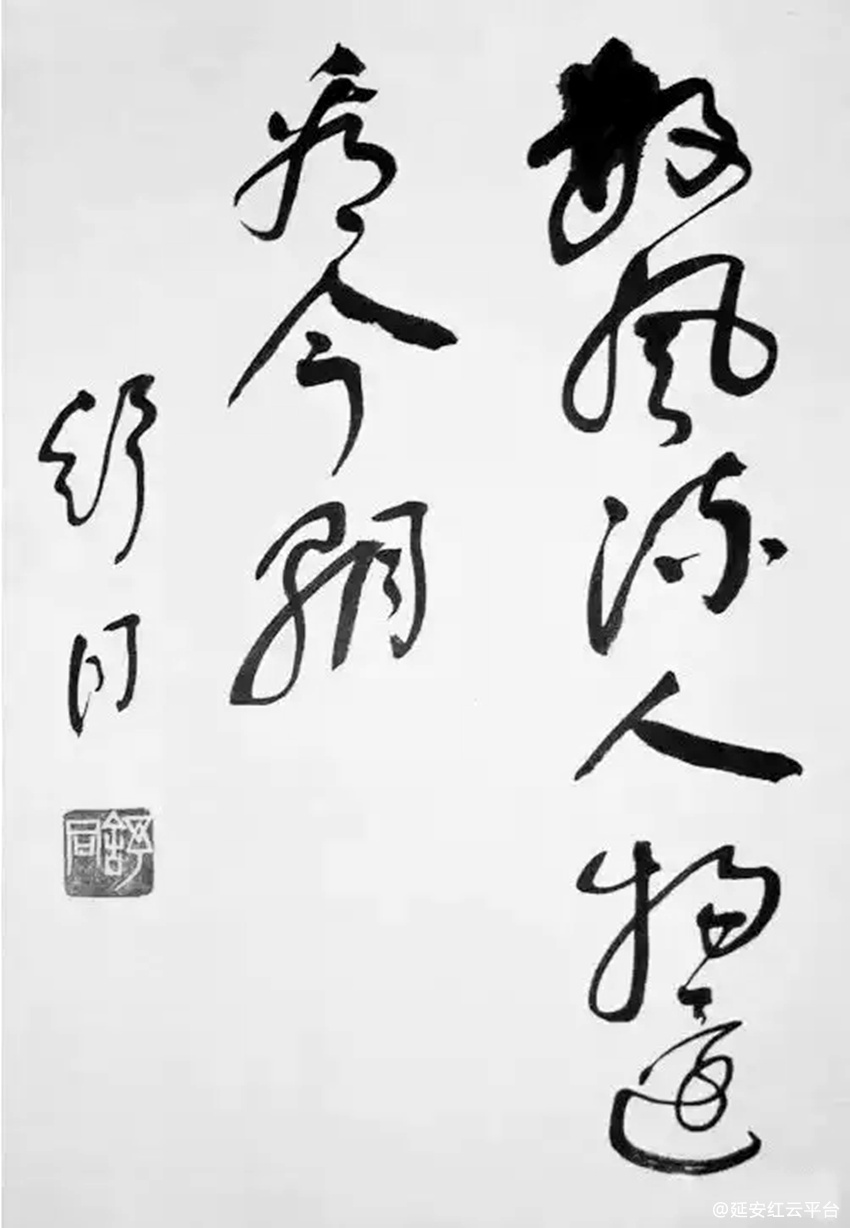 數風流人物還
看今朝
舒同
舒同
@延安红云平台